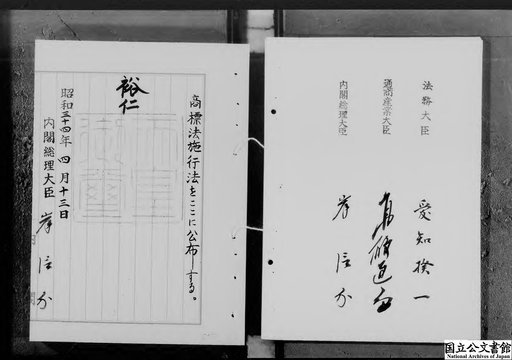 商標法施行法をここに公布する。
裕仁
昭和三十四年四月十三日
内閣総理大臣 岸信介
法務大臣 愛知揆一
通商産業大臣
内閣総理大臣 岸信介
国立公文書館
National Archives of Japan